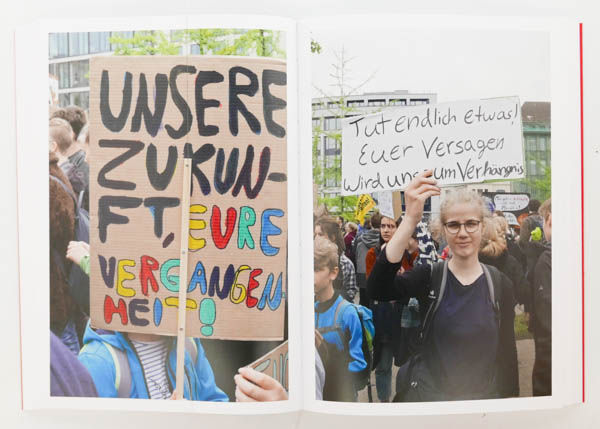 UNSERE
ZUKUN-
FT, EURE
VERGANGEN-
HEIT!
Tut endlich etwas!
Euer Versagen
wird uns zum Verhängnis